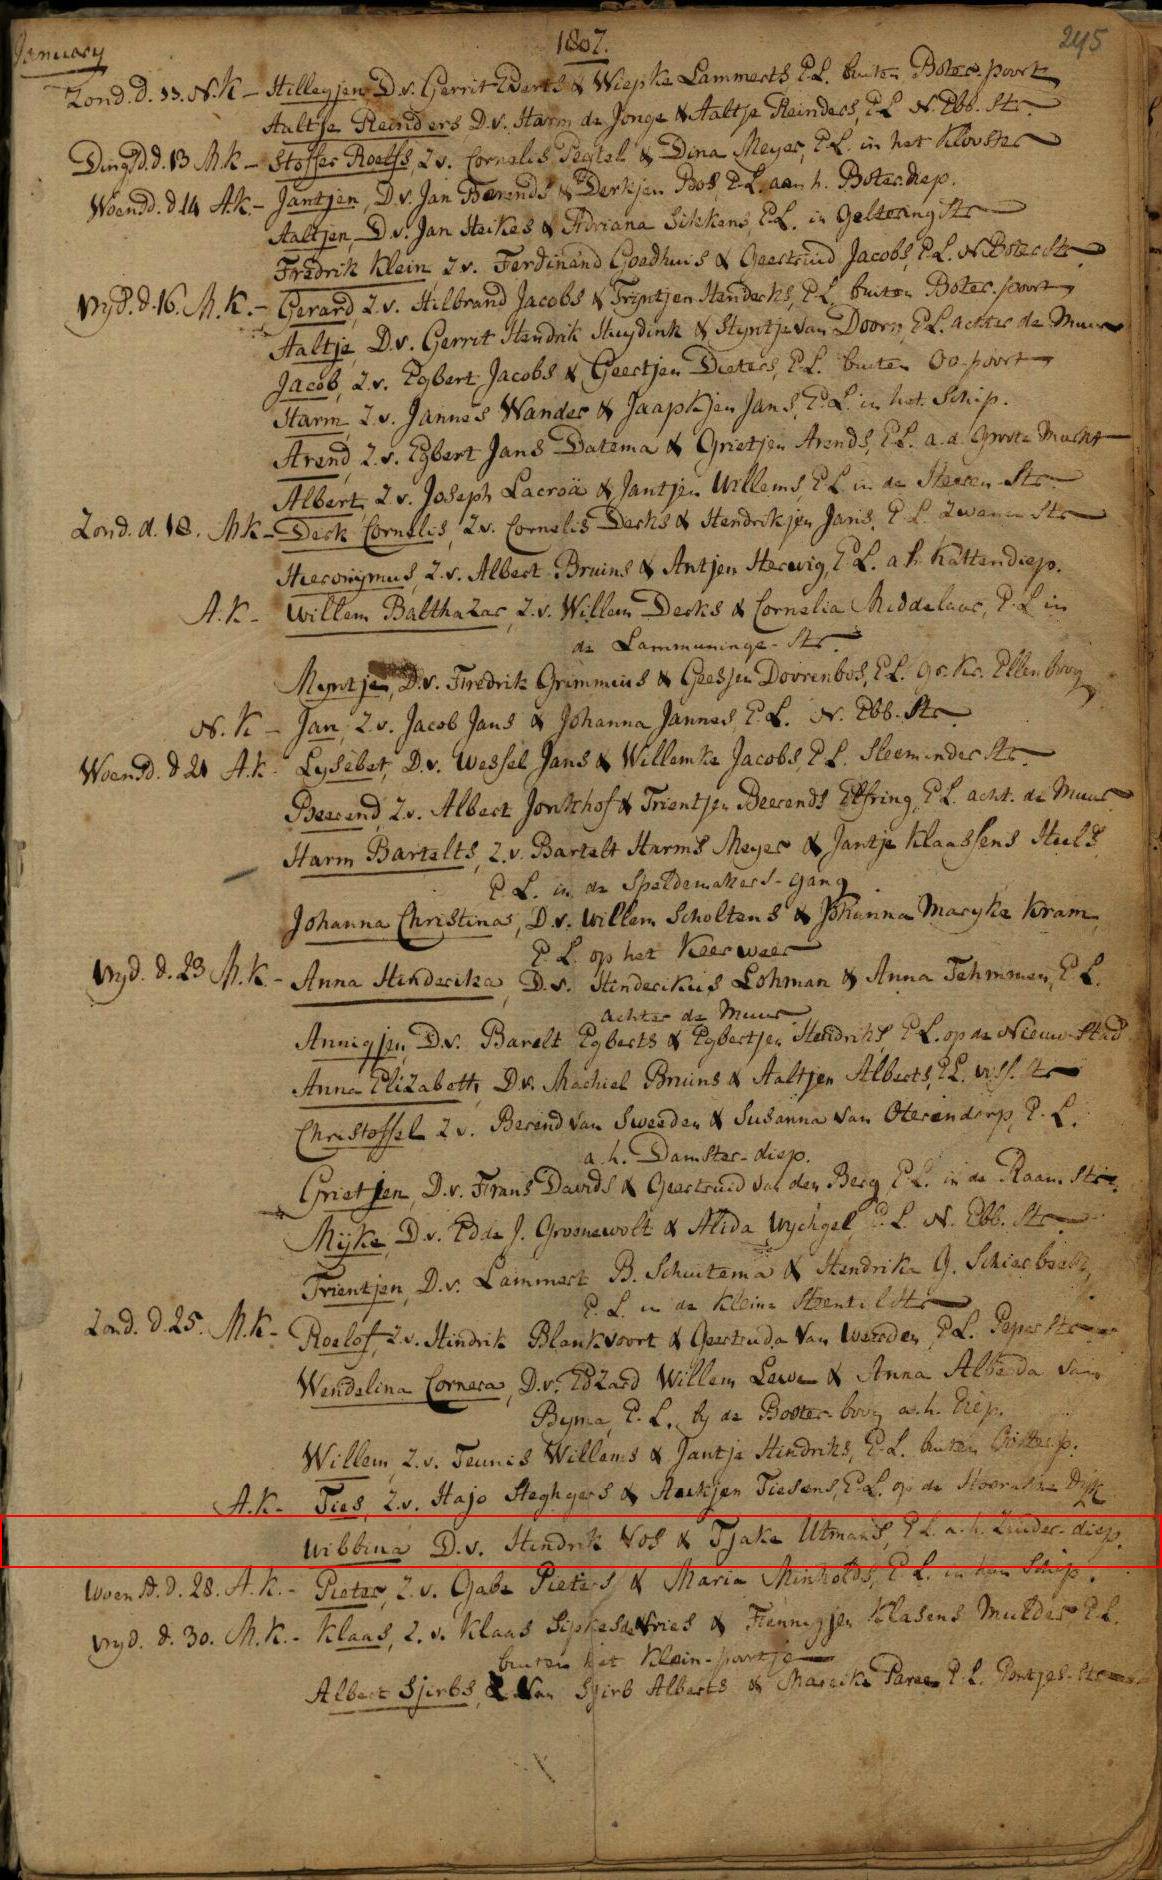 January 1807. 245
Zond. d. 11. N.K - Hillegjen, D.v. Gerrit Everts & Wiepke Lammerts, E.L. buiten Boter-poort
Aaltje Reinders D.v. Harm de Jonge & Aaltje Reinders, E.L. N. Ebb. Str.
Dingsd. d. 13 M.K - Stoffer Roelfs, Z.v. Cornelis Pegtel & Dina Meyer, E.L. in het Klooster
Woensd. d 14 A.K. - Jantjen, D.v. Jan Berends & Derkjen Bos, E.L. aan h. Boterdiep.
Aaltjen, D.v. Jan Heikes & Adriana Sikkens, E.L. in Gelkering Str
Fredrik Klein, Z.v. Ferdinand Goedhuis & Geertruid Jacobs, E.L. N. Boter Str.
Vryd. d. 16. M.K. - Gerard, Z.v. Hilbrand Jacobs & Tryntjen Henderks, E.L. buiten Boter-poort
Aaltje, D.v. Gerrit Hendrik Huydink & Styntje van Doorn, E.L. achter de Muur
Jacob, Z.v. Egbert Jacobs & Geertjen Dieters, E.L. buiten Oo-poort
Harm, Z.v. Jannes Wander & Jaapkjen Jans, E.L. in het Schip.
Arend, Z.v. Egbert Jans Datema & Grietjen Arends, E.L. a.d. Groote Markt
Albert, Z.v. Joseph Lacroä & Jantjen Willems, E.L. in de Heeren-Str.
Zond. d. 18. M.K - Derk Cornelis, Z.v. Cornelis Derks & Hendrikjen Jans, E.L. Zwanen Str
Hieronijmus, Z.v. Albert Bruins & Antjen Herwig, E.L. a.h. Kattendiep.
A.K - Willem Balthazar, Z.v. Willem Derks & Cornelia Middelaar, E.L. in
de Lammuninge-Str.
Myntjen, D.v. Fredrik Grimmius & Geesjen Dovrenbos, E.L. Gr. Kr. Ellenboog
N.K - Jan, Z.v. Jacob Jans & Johanna Jannes, E.L. N. Ebb. Str
Woensd. d 21 A.K - Lysebet, D.v. Wessel Jans & Willemke Jacobs, E.L. Sleeminder Str.
Beerend, Z.v. Albert Jonkhof & Trientjen Beerends Elfring, E.L. acht. de Muur
Harm Bartelts, Z.v. Bartelt Harms Meyer & Jantje Klaassens Heels,
E.L. in de Speldemakers-gang.
Johanna Christina, D.v. Willem Scholtens & Johanna Maryke Kram,
E.L. op het Keerweer
Vryd. d. 23 M.K. - Anna Hinderika, D.v. Hinderikus Lohman & Anna Tehmmen, E.L.
achter de Muur
Annigjen, D.v. Barelt Egberts & Egbertjen Hendriks, E.L. op de Nieuw-Stad
Anna Elizabeth, D.v. Machiel Bruins & Aaltjen Alberts, E.L. Viss. Str
Christoffel Z.v. Berend van Sweeden & Susanna van Oterendorp, E.L.
a.h. Damster-diep.
Grietjen, D.v. Frans Davids & Geertruid van den Berg, E.L. in de Raam Str.
Mijke, D.v. Edde J. Groenewolt & Alida Wychgel E.L. N. Ebb. Str
Trientjen, D.v. Lammert B. Schutema & Hendrika G. Schierbeek,
E.L. in de kleine Steentil Str
Zond. d. 25. M.K - Roelof, Z.v. Hindrik Blankvoort & Geertruida van Weerden, E.L. Peper Str
Wendelina Cornera, D.v. Edzard Willem Lewe & Anna Alberda van
Byma, E.L. by de Booter-boog a.h. Diep.
Willem, Z.v. Teunis Willems & Jantje Hindriks, E.L. buiten
A.K - Ties, Z.v. Hajo Heghgers & Aaekjen Tiesens, E.L. op de Hoornsche Dijk
Wibbina D.v. Hendrik Vos & Tjake Utmans, E.L. a.h. Zuider-diep.
Woensd. d. 28. A.K. - Pieter, Z.v. Gabe Pieters & Maria Minholds, E.L. in hun Schip.
Vryd. d. 30. M.K. - Klaas, Z.v. Klaas Sipkes de Vries & Fennigjen Klasens Mulder E.L.
buiten het Klein-poortje
Albert Sjirbs, Z. van Sjirb Alberts & Mareike Paree, E.L. Pontjes-Str